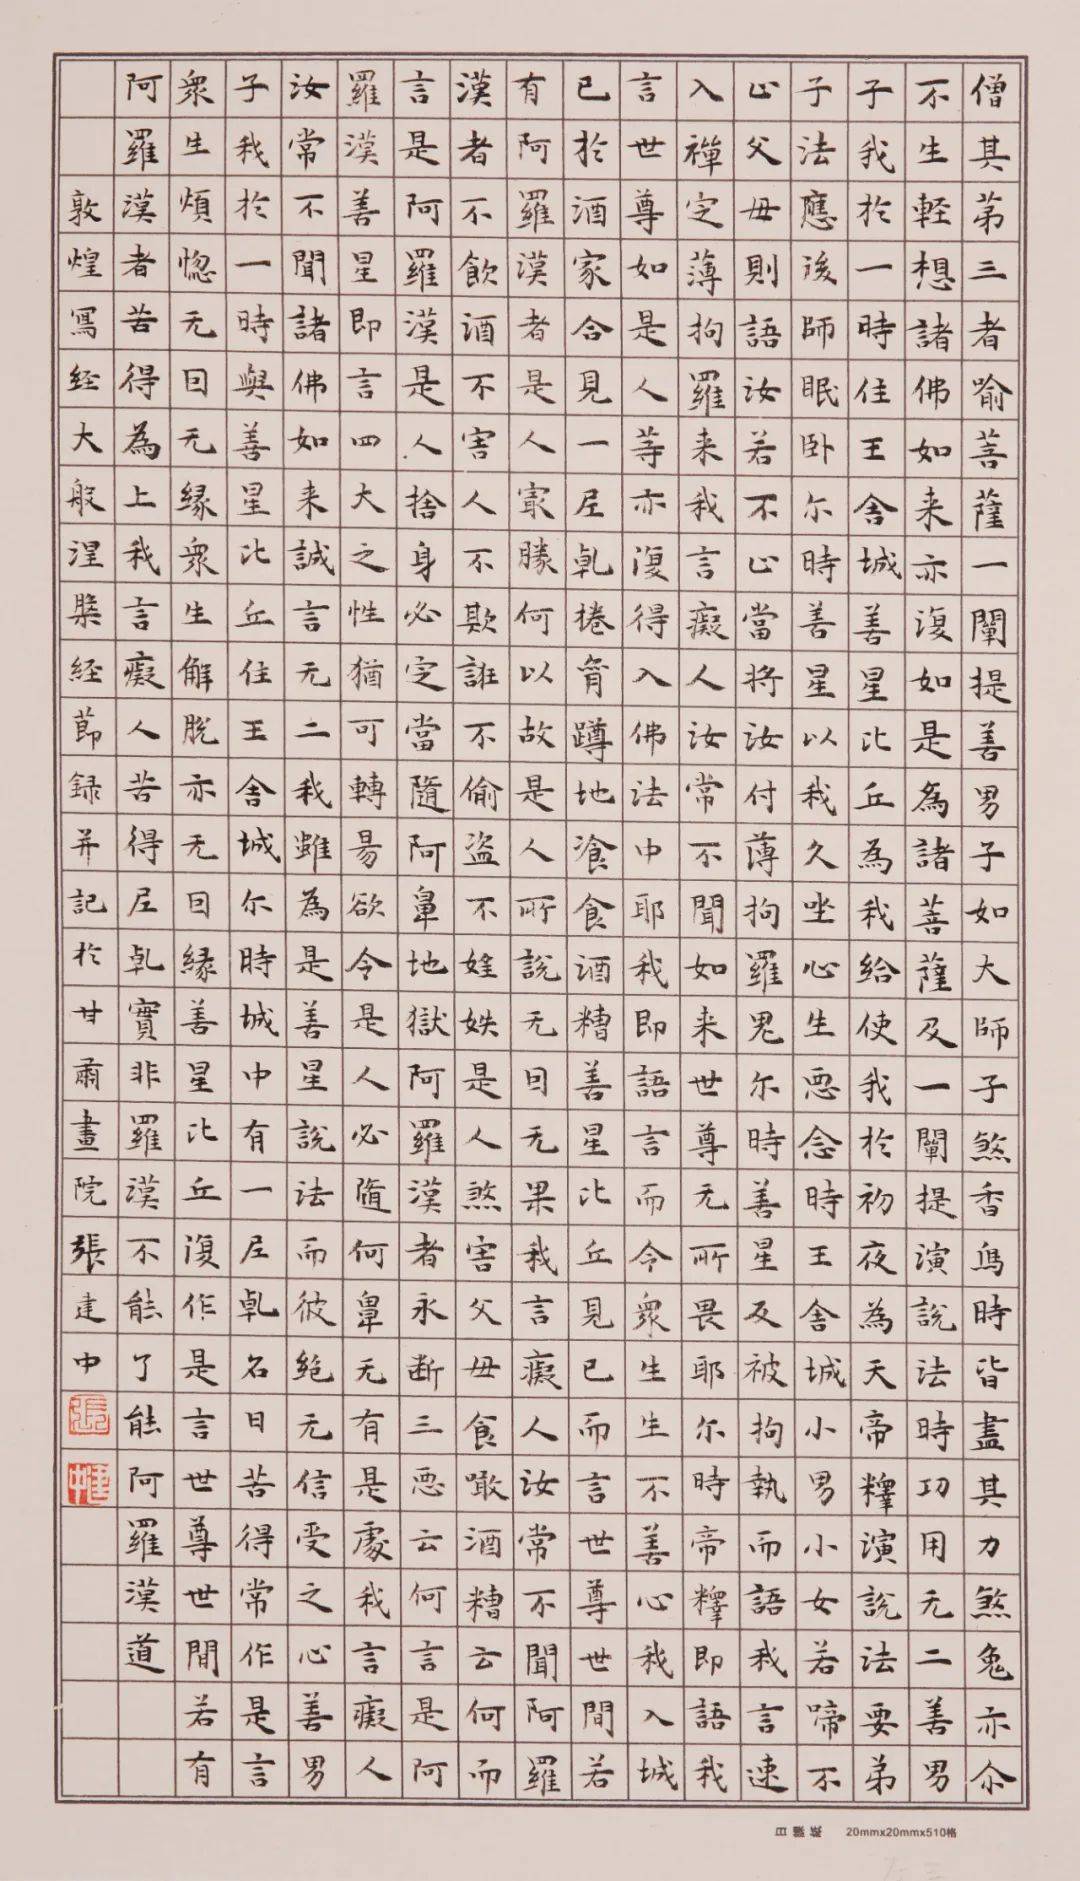 僧其苐三者喻菩薩一闡提善男子如大師子煞香烏時皆盡其力煞兔亦尒
不生輕想諸佛如来亦復如是為諸菩薩及一闡提演說法時功用无二善男
子我於一時住王舍城善星比丘為我給使我於初夜為天帝釋演說法要弟
子法應後師眠卧尔時善星以我久坐心生惡念時王舍城小男小女若啼不
止父母則語汝若不止當將汝付薄拘羅鬼尔時善星反被拘執而語我言速
入禪定薄拘羅来我言癡人汝常不聞如来世尊无所畏耶尔時帝釋即語我
言世尊如是人等亦復得入佛法中耶我即語言而令衆生生不善心我入城
已於酒家合見一尼乹捲脊蹲地飡食酒糟善星比丘見已而言世尊世間若
有阿羅漢者是人冣勝何以故是人所說无因无果我言癡人汝常不聞阿羅
漢者不飲酒不害人不欺誑不偷盜不婬妷是人煞害父母食噉酒糟云何而
言是阿羅漢是人捨身必定當隨阿鼻地獄阿羅漢者永断三惡云何言是阿
羅漢善星即言四大之性猶可轉易欲令是人必隨何鼻无有是處我言癡人
汝常不聞諸佛如来誠言无二我雖為是善星說法而彼絶无信受之心善男
子我於一時與善星比丘住王舍城尔時城中有一尼乹名曰苦得常作是言
衆生煩惚无因无緣衆生解脫亦无因緣善星比丘復作是言世尊世間若有
阿羅漢者苦得為上我言癡人苦得尼乹實非羅漢不能了能阿羅漢道
敦煌寫経大般涅槃経節録并記於甘肅畫院張建中
張
建中
20mmx20mmx510格